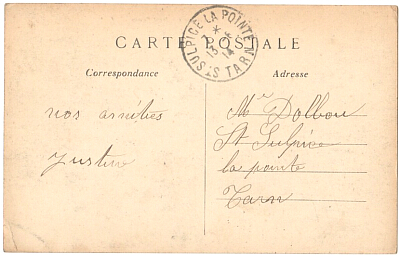 CARTE POSTALE
ST SULPICE LA POINTE
TARN
Correspondance
Adresse
nos amitiés
Justin
Mr Dolbou
St Sulpice
la pointe
Tarn